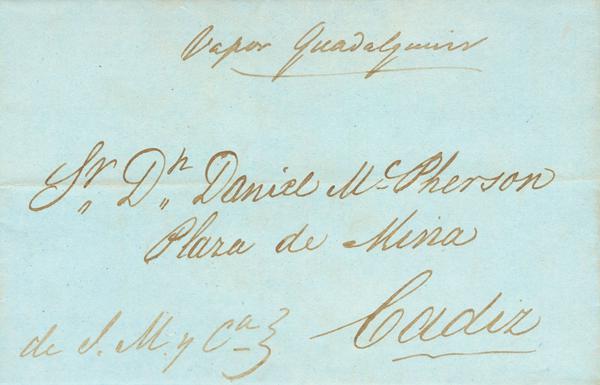 Vapor Guadalquivir
Sr. Dn. Daniel McPherson
Plaza de Mina
Cadiz
de J. M. y Ca